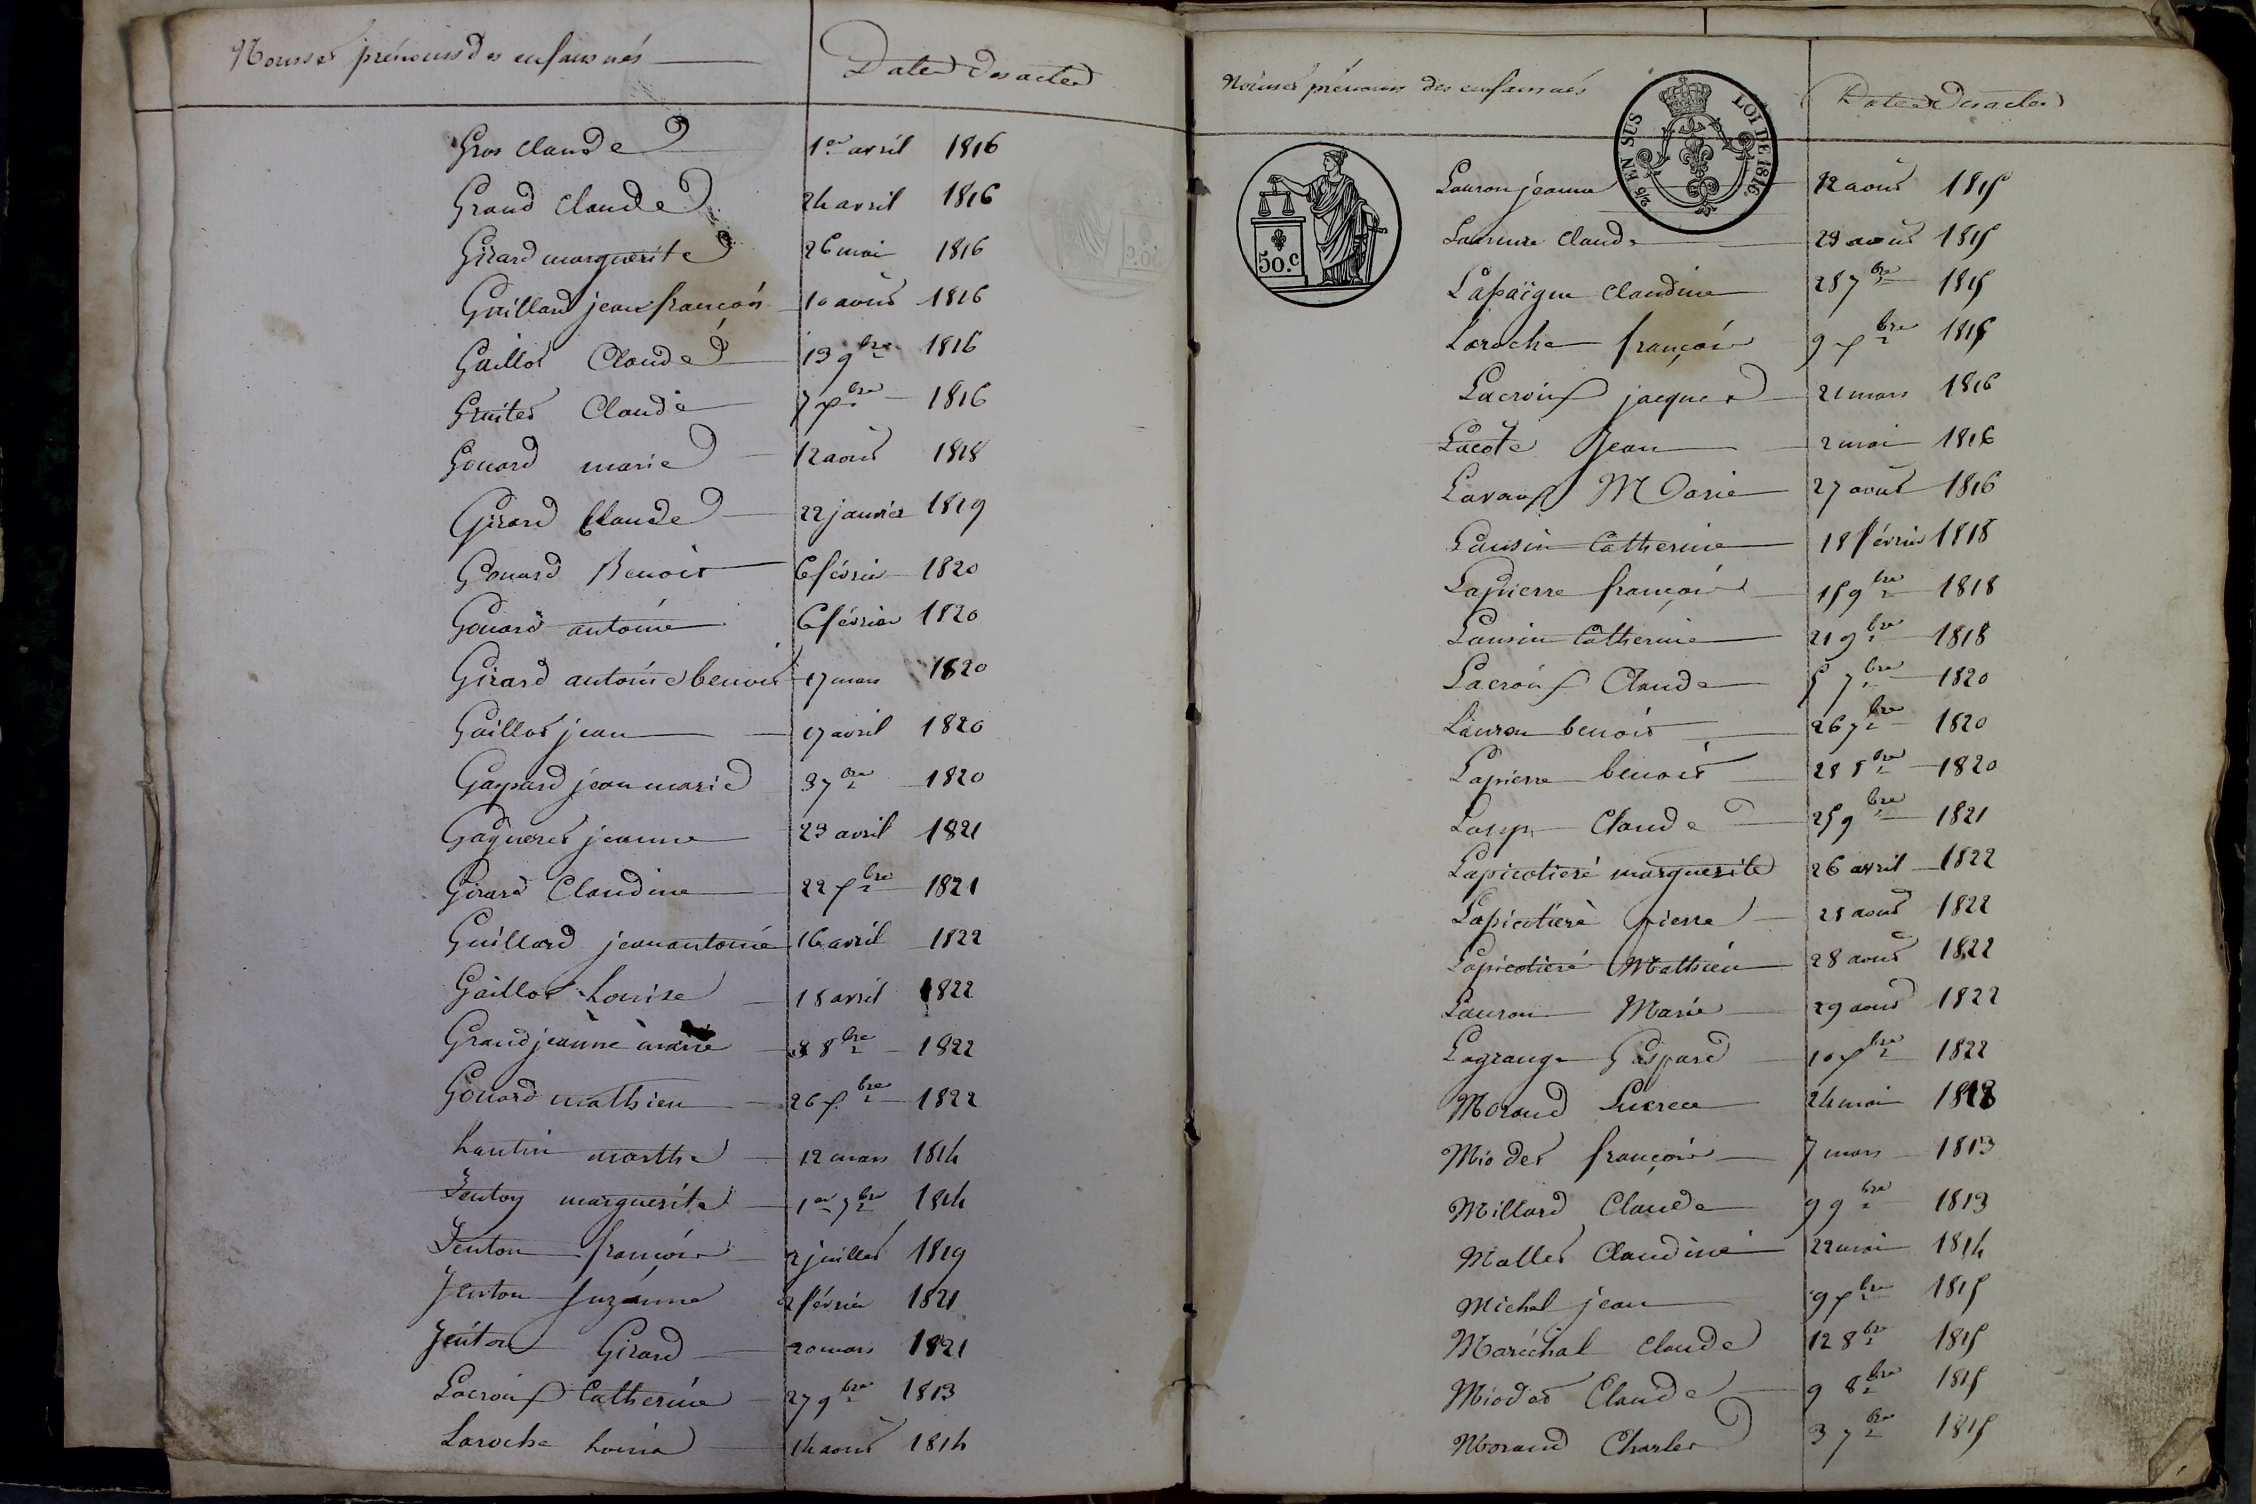 Noms et prénoms des enfans nés Dates des actes
Gros Claude 1er avril 1816
Grand Claude 24 avril 1816
Girard marguerite 26 mai 1816
Guillard jean françois 10 aout 1816
Gaillot Claude 13 9bre 1816
Claude 7 xbre 1816
Gouard marie 12 aout 1818
Girard Claude 22 janvier 1819
Gouard Benoit 6 février 1820
Gouard antoine 6 février 1820
Girard antoine benoit 17 mars 1820
Gaillot jean 17 avril 1820
Gaspard jean marie 3 7bre 1820
Gagneret jeanne 23 avril 1821
Girard Claudine 22 xbre 1821
Guillard jean antoine 16 avril 1822
Gaillot Louise 18 avril 1822
Grand jeanne marie 8bre 1822
Gouard mathieu 26 xbre 1822
marthe 12 mars 1814
marguerite 1er 7bre 1814
Jenton françois 2 juillet 1819
Jenton Suzanne 2 février 1821
Jenton Girard 20 mars 1821
Lacroix Catherine 27 9bre 1813
Laroche Louisa 14 aout 1814
Noms et prénoms des enfans nés Dates des actes
2/5 EN SUS LOI DE 1816.
50.c
Lauron jeanne 12 aout 1815
Claude 29 aout 1815
Claudine 28 7bre 1815
Laroche françois 9 xbre 1815
Lacroix jacques 21 mars 1816
Lacote Jean 2 mai 1816
Lavaux Marie 27 aout 1816
Lansin Catherine 18 février 1818
Lapierre françois 15 9bre 1818
Lansin Catherine 21 9bre 1818
Lacroix Claude 5 7bre 1820
Lauron benoit 26 7bre 1820
Lapierre benoit 1820
Claude 25 9bre 1821
Lapicotieré marguerite 26 avril 1822
Lapicotierè pierre 28 aout 1822
Lapicotieré Mathieu 28 aout 1822
Lauron Marie 29 aout 1822
Lagrange Gaspard 10 xbre 1822
Morand Lucrece 24 mai 1813
Miodet françois 7 mars 1813
Millard Claude 9 9bre 1813
Mallet Claudine 22 mai 1814
Michel jean 9 xbre 1815
Maréchal Claude 12 8bre 1815
Miodet Claude 9 8bre 1815
Morand Charles 3 7bre 1815